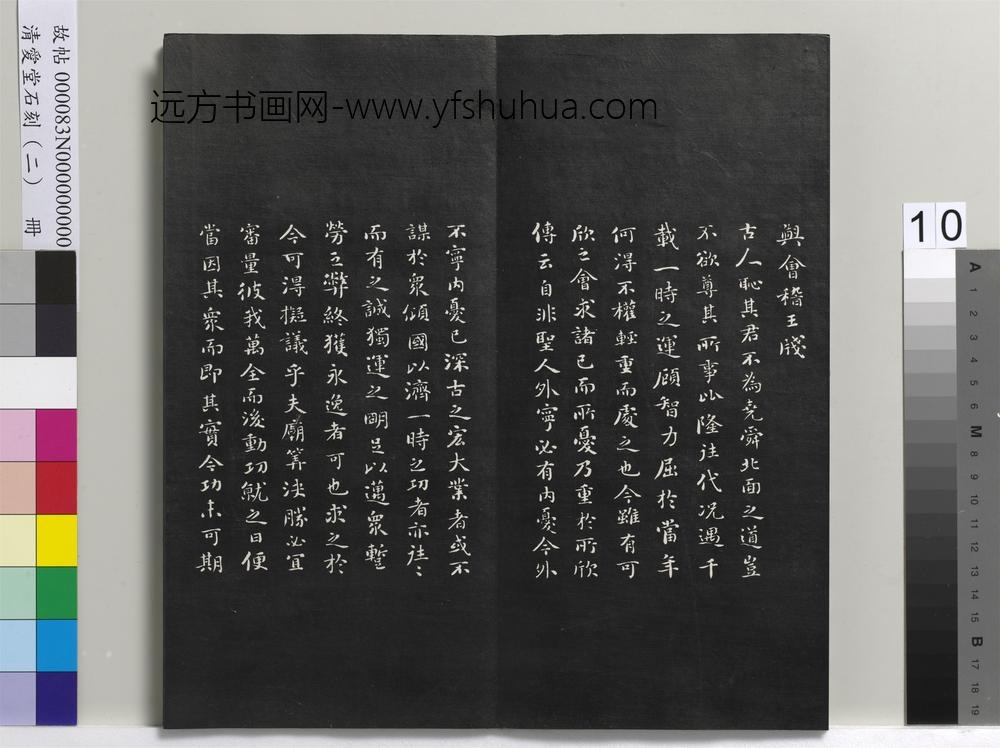 远方书画网-www.yfshuhua.com
故帖 000083N000000000
清愛堂石刻（二） 冊
與會稽王牋
古人恥其君不為堯舜北面之道豈
不欲尊其所事比隆往代况遇千
載一時之運顧智力屈於當年
何得不權輕重而處之也今雖有可
欣之會求諸己而所憂乃重於所欣
傳云自非聖人外寧必有内憂今外
不寧内憂已深古之宏大業者或不
謀於衆傾國以濟一時之功者亦往〻
而有之誠獨運之明足以邁衆暫
勞之弊終獲永逸者可也求之於
今可得擬議乎夫廟筭決勝必宜
審量彼我萬全而後動功就之日便
當因其衆而即其實今功未可期
10
A 1 2 3 4 5 6 M 8 9 10 11 12 13 14 15 B 17 18 19